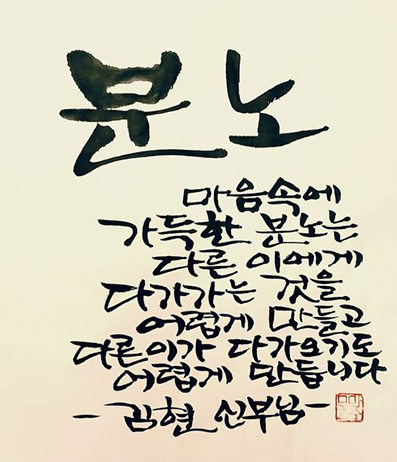 분노
마음속에
가득한 분노는
다른 이에게
다가가는 것을
어렵게 만들고
다른이가 다가오기도
어렵게 만듭니다
- 김현 신부님 -